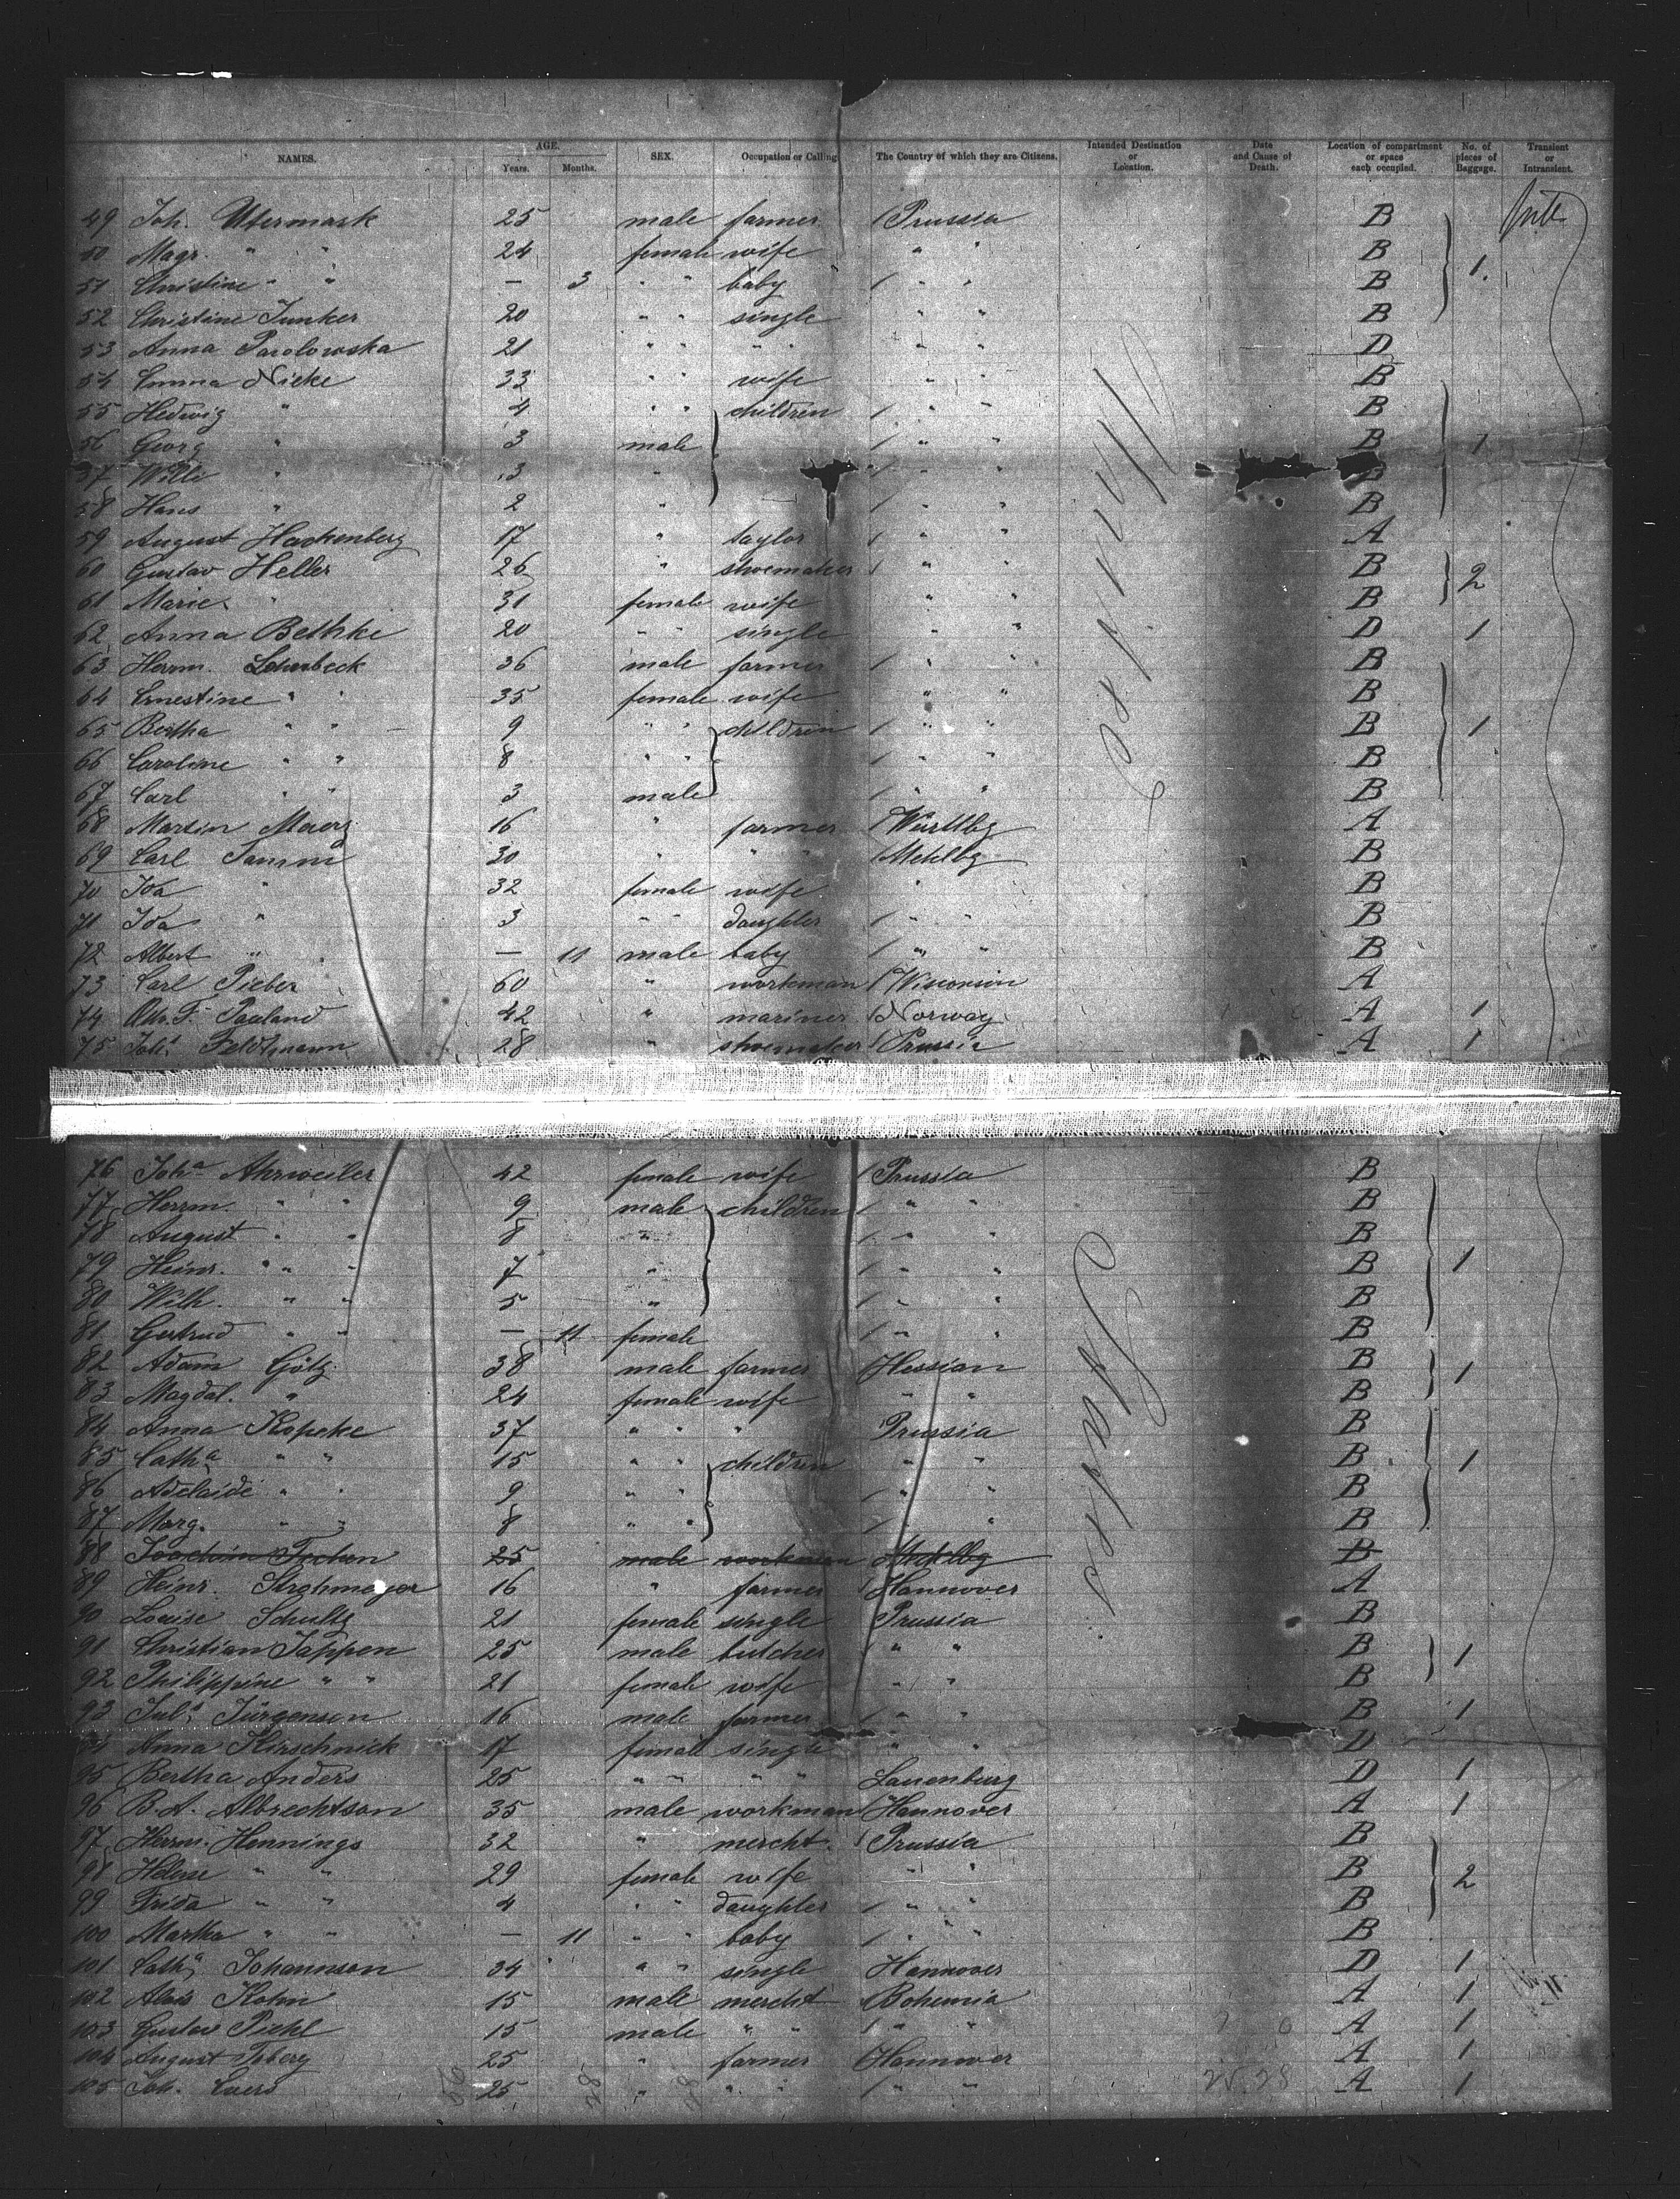 NAMES. AGE. Years. Months. SEX. Occupation or Calling The Country of which they are Citizens. Intended Destination or Location. Date and Cause of Death. Location of compartment or space each occupied. No. of pieces of Baggage. Transient or Intransient.
49 Joh. Utermark 25 male farmer / Prussia B
50 Magr. " " 24 female wife " " B
51 Christine " " — 3 " " baby / " " B 1.
52 Christine Junker 20 " " single " " B
53 Anna 21 " " " " " " D
54 Emma Nicke 33 " " wife " " B
55 Hedwig " 4 " " children / " " B
56 Georg " 3 male / " " B 1
57 Willi " 3 " / " " B
58 Hans " 2 " / " " B
59 August Hackenberg 17 " taylor / " " A
60 Gustav Heller 26 " shoemaker / " " B 2
61 Marie " 31 female wife " " B
62 Anna Bethke 20 " " single " " D 1
63 Herrm. 36 male farmer / " " B
64 Ernestine " " 35 female wife " " B
65 Bertha " " 9 " " children / " " B 1
66 Caroline " " 8 " " / " " B
67 Carl " " 3 male / " " B
68 Martin 16 " farmer / Württbg A
69 Carl Tamm 30 " " " / Meklbg B
70 Ida " 32 female wife " B
71 Ida " 3 " " daughter / " " B
72 Albert " — 11 male baby / " " B
73 Carl Pieber 60 " workman / Wisconsin A
74 42 " mariner / Norway A 1
75 Johs Feldtmann 28 " shoemaker / Prussia A 1
76 Joha Ahrweiler 42 female wife / Prussia B
77 Herrm. " " 9 male children / " " B
78 August " " 8 " / " " B
79 Heinr. " " 7 " / " " B 1
80 Wilh. " " 5 " / " " B
81 Gertrud " " — 11 female / " " B
82 Adam Götz 38 male farmer / Hessian B 1
83 Magdal. " 24 female wife " " B
84 Anna Kopcke 37 " " " Prussia B
85 Catha " " 15 " " children " " B 1
86 Adelaide " " 9 " " / " " B
87 Marg. " " 8 " " / " " B
88 Joachim 25 male workman Meklbg B
89 Heinr. Strohmeyer 16 " farmer / Hannover A
90 Louise Schultz 21 female single Prussia B
91 Christian Tappen 25 male butcher / " " B 1
92 Philippine " " 21 female wife " " B
93 Juls Jürgensen 16 male farmer / " " B 1
94 Anna Kirschnick 17 female single " " D
95 Bertha Anders 25 " " " " Lauenburg D 1
96 B. A. Albrechtson 35 male workman / Hannover A 1
97 Herrm. Hennings 32 " mercht. / Prussia B
98 Helene " " 29 female wife " " B 2
99 Frida " " 4 " " daughter / " " B
100 Martha " " — 11 " " baby / " " B
101 Catha Johannson 34 " " single Hannover D 1
102 Alois Kohn 15 male mercht / Bohemia A 1
103 Gustav Piehl 15 male " " / " " A 1
104 August 25 " farmer / Hannover A 1
105 Joh. 25 " " " / " " A 1